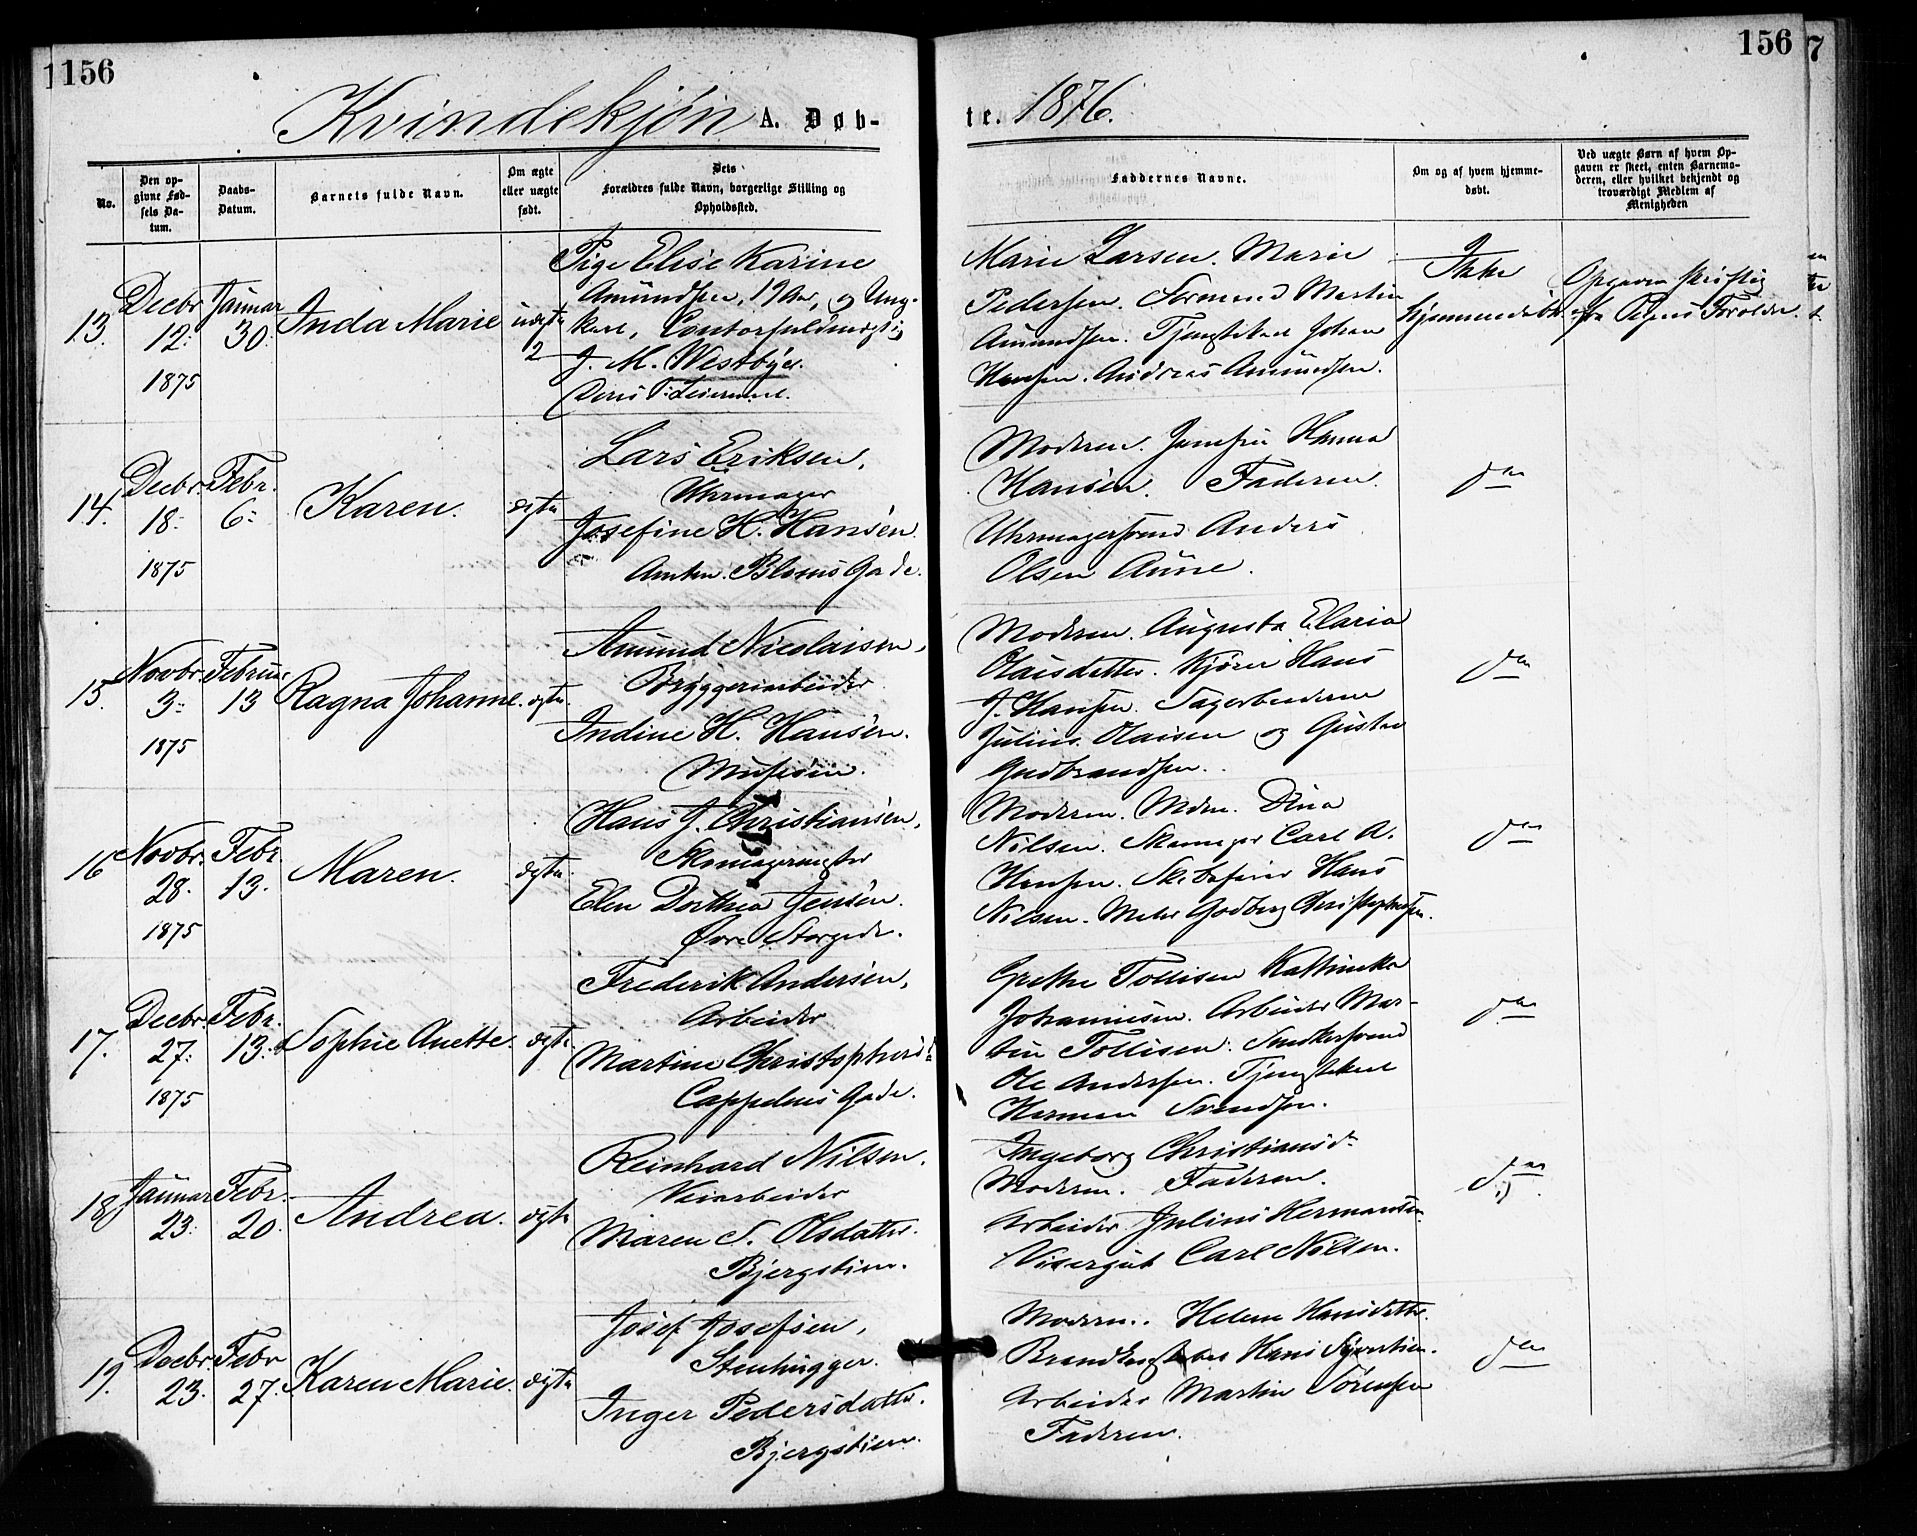 156
156
7
Kvindekjön A. Døb-
te. 1876.
No.
Den op-
givne Fød-
sels Da-
tum.
Daabs-
Datum.
Barnets fulde Navn.
Om ægte
eller uægte
født.
Dets
Forældres fulde Navn, borgerlige Stilling og
Opholdssted.
Faddernes Navne.
Om og af hvem hjemme-
døbt.
Ved uægte Børn af hvem Op-
gaven er skeet, enten Barnemo-
deren, eller hvilket bekjendt og
troværdigt Medlem af
Menigheden
13.
Decbr.
12.
1875
Januar
30.
Inda Marie
uægte
2
Pige Elise Karine
Amundsen, 19 Aar, og Ung-
karl, Contorfuldmægtig
J. M. Westbye.
Marie Larsen. Marie
Pedersen. Sømand Martin
Amundsen. Tjenestekarl Johan
Hansen. Andreas Amundsen.
Ikke
hjemmedøbt.
Opgaven skriftlig
fra Pigens Forældre.
14.
Decbr.
18.
1875
Febr.
6.
Karen.
ægte
Lars Eriksen,
Uhrmager
Josefine H. Hansen.
Amtm. Bloms Gade.
Moderen. Jomfru Hanna
Hansen. Faderen.
Uhrmagersvend Anders
Olsen Aune.
do
15.
Novbr.
3.
1875
Februar
13
Ragna Johanne.
ægte.
Amund Nicolaisen,
Bryggeriarbeider
Indine H. Hansen.
Moderen. Augusta Elaria
Olausdatter. Kjører Hans
J. Hansen. Sagarbeiderne
Julius Olaisen og Gustav
Gudbrandsen.
do
16
Novbr.
28.
1875
Febr.
13.
Maren.
ægte.
Hans J. Christiansen,
Skomagermester
Elen Dorthea Jensen.
Øvre Storgade.
Moderen. Mdm. Dina
Nilsen. Skomager Carl A.
Hansen. Skibsfører Hans
Nilsen. Maler Godberg Christophersen.
do
17.
Decbr.
27.
1875
Febr.
13.
Sophie Anette.
ægte.
Frederik Andersen,
Arbeider
Martine Christophersd.
Cappelens Gade.
Grethe Tollisen Kathinka
Johannesen. Arbeider Mar-
tin Tollisen. Snedkersvend
Ole Andersen. Tjenestekarl
Herman Svendsen.
do
18
Januar
23.
Febr.
20.
Andrea.
ægte
Reinhard Nilsen.
Veiarbeider
Maren S. Olsdatter.
Bjergstien.
Ingeborg Christiansd.
Moderen. Faderen.
Arbeider Julius Hermansen
Visergut Carl Nilsen.
do
19.
Decbr.
23.
Febr
27.
Karen Marie.
ægte
Josef Josefsen,
Stenhugger.
Inger Pedersdatter.
Bjergstien.
Moderen. Helene Hansdatter.
Brandkonstabel Hans Syvertsen.
Arbeider Martin Sørensen
Faderen.
do